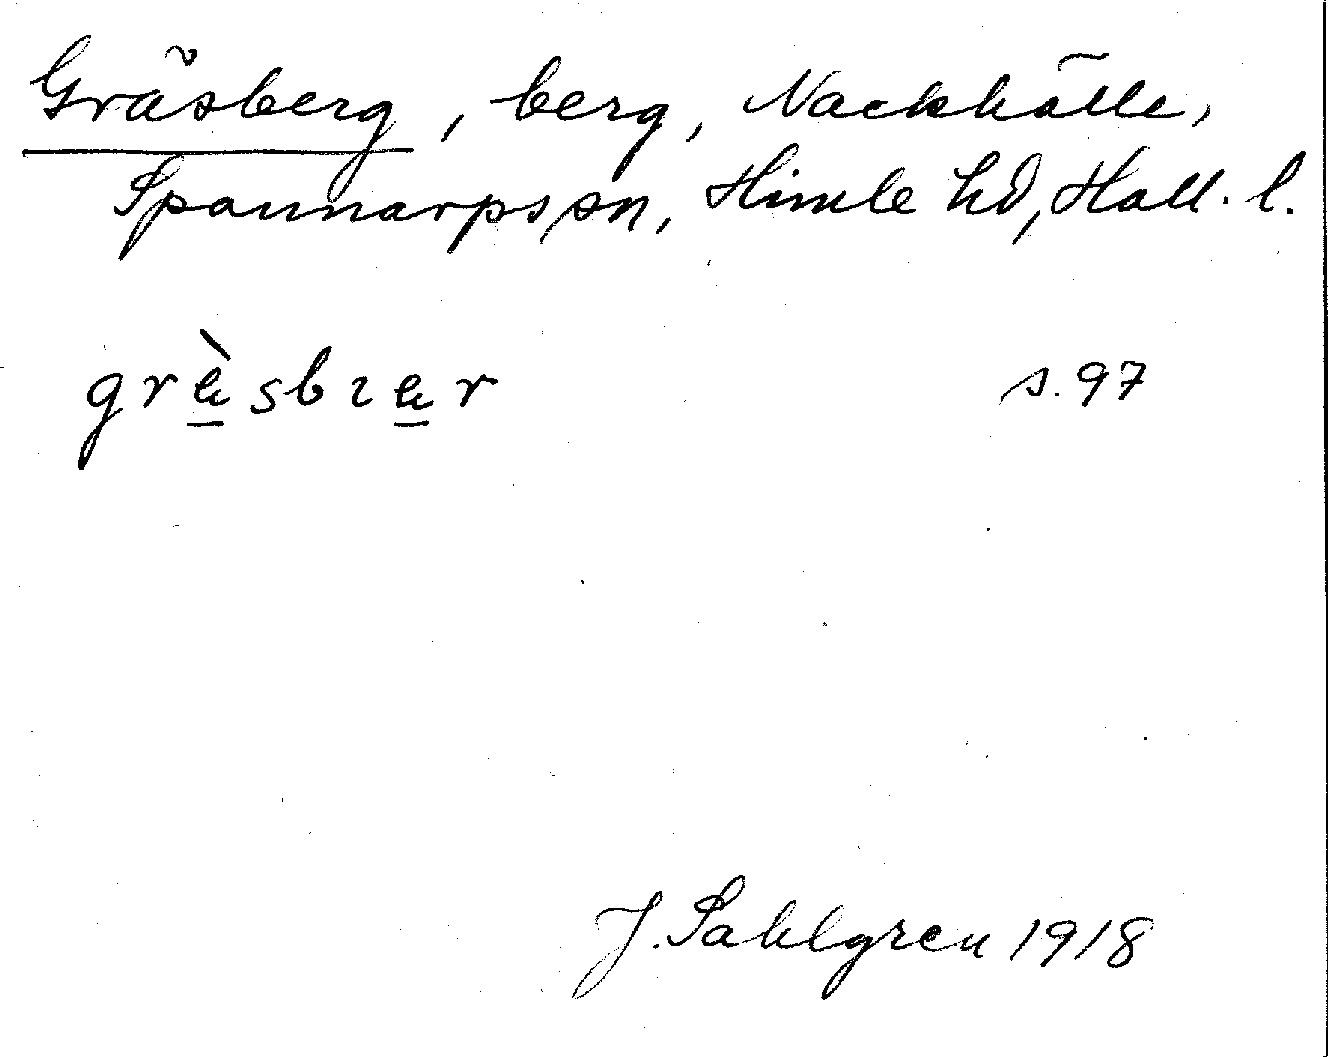 Gräsberg, berg, Nackhälle,
Spannarps sn, Himle hd, Hall. l.
græ̀sbɿær s. 97
J. Sahlgren 1918